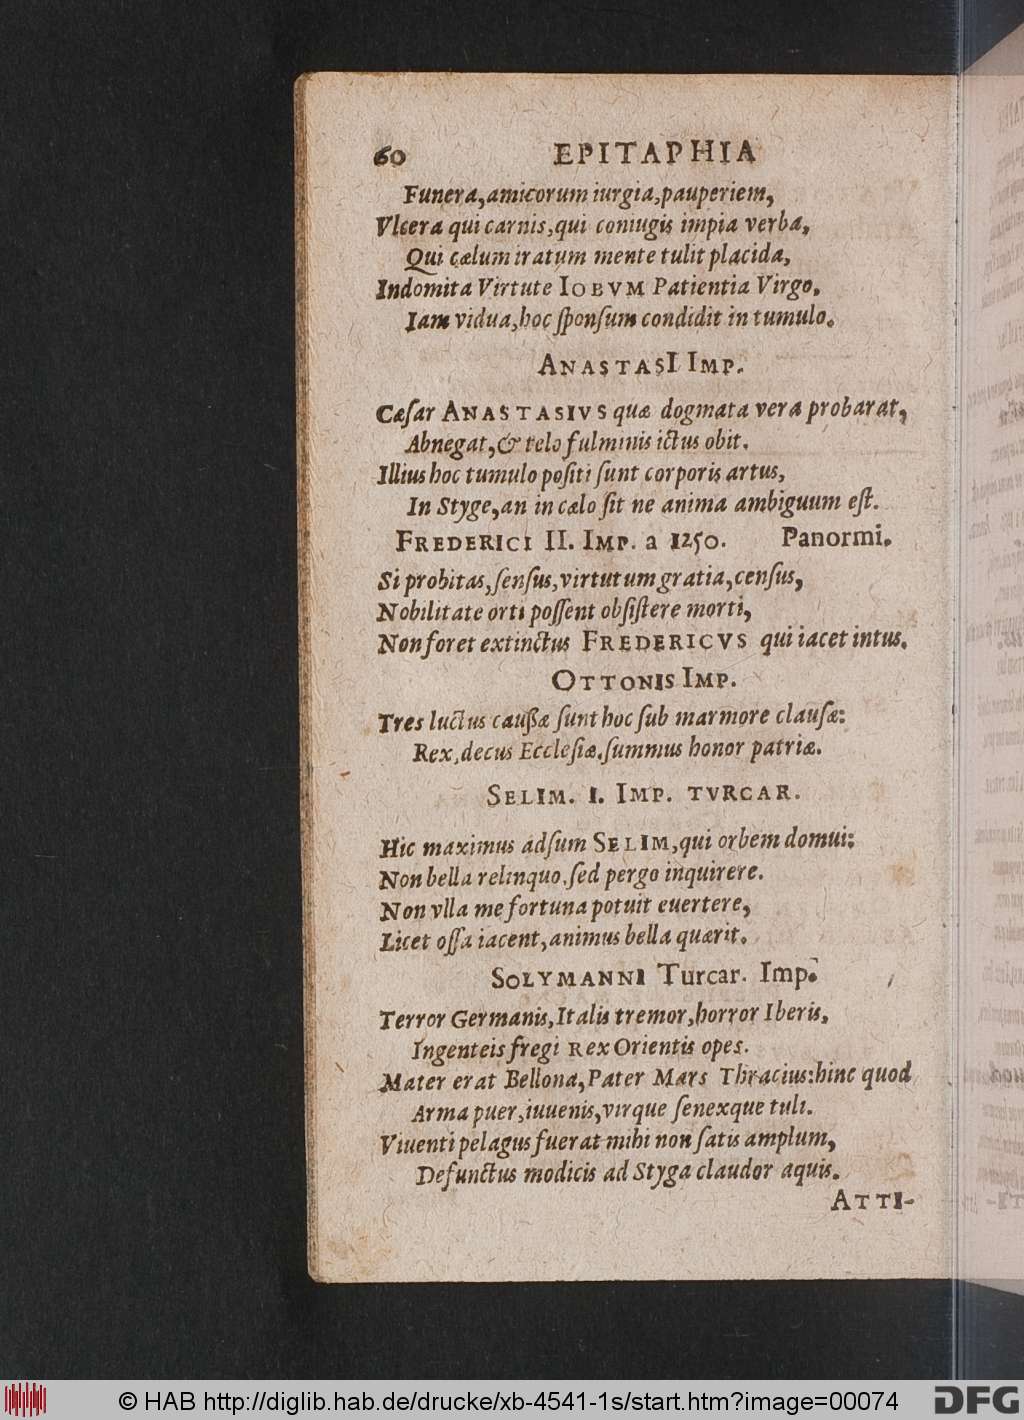 60 EPITAPHIA
Funera, amicorum iurgia, pauperiem,
Vlcera qui carnis, qui coniugis impia verba,
Qui cælum iratum mente tulit placida,
Indomita Virtute IOBVM Patientia Virgo,
Iam vidua, hoc ſponſum condidit in tumulo.
ANASTASI IMP.
Cæſar ANASTASIVS quæ dogmata vera probarat,
Abnegat, & telo fulminis ictus obit.
Illius hoc tumulo poſiti ſunt corporis artus,
In Styge, an in cælo ſit ne anima ambiguum eſt.
FREDERICI II. IMP. a 1250. Panormi.
Si probitas, ſenſus, virtutum gratia, cenſus,
Nobilitate orti poſſent obſiſtere morti,
Non foret extinctus FREDERICVS qui iacet intus.
OTTONIS IMP.
Tres luctus cauſſæ ſunt hoc ſub marmore clauſæ:
Rex, decus Eccleſiæ, ſummus honor patriæ.
SELIM. I. IMP. TVRCAR.
Hic maximus adſum SELIM, qui orbem domui:
Non bella relinquo, ſed pergo inquirere.
Non vlla me fortuna potuit euertere,
Licet oſſa iacent, animus bella quærit.
SOLYMANNI Turcar. Imp.
Terror Germanis, Italis tremor, horror Iberis,
Ingenteis fregi Rex Orientis opes.
Mater erat Bellona, Pater Mars Thracius: hinc quod
Arma puer, iuuenis, virque ſenexque tuli.
Viuenti pelagus fuerat mihi non ſatis amplum,
Defunctus modicis ad Styga claudor aquis.
ATTI-
© HAB http://diglib.hab.de/drucke/xb-4541-1s/start.htm?image=00074
DFG